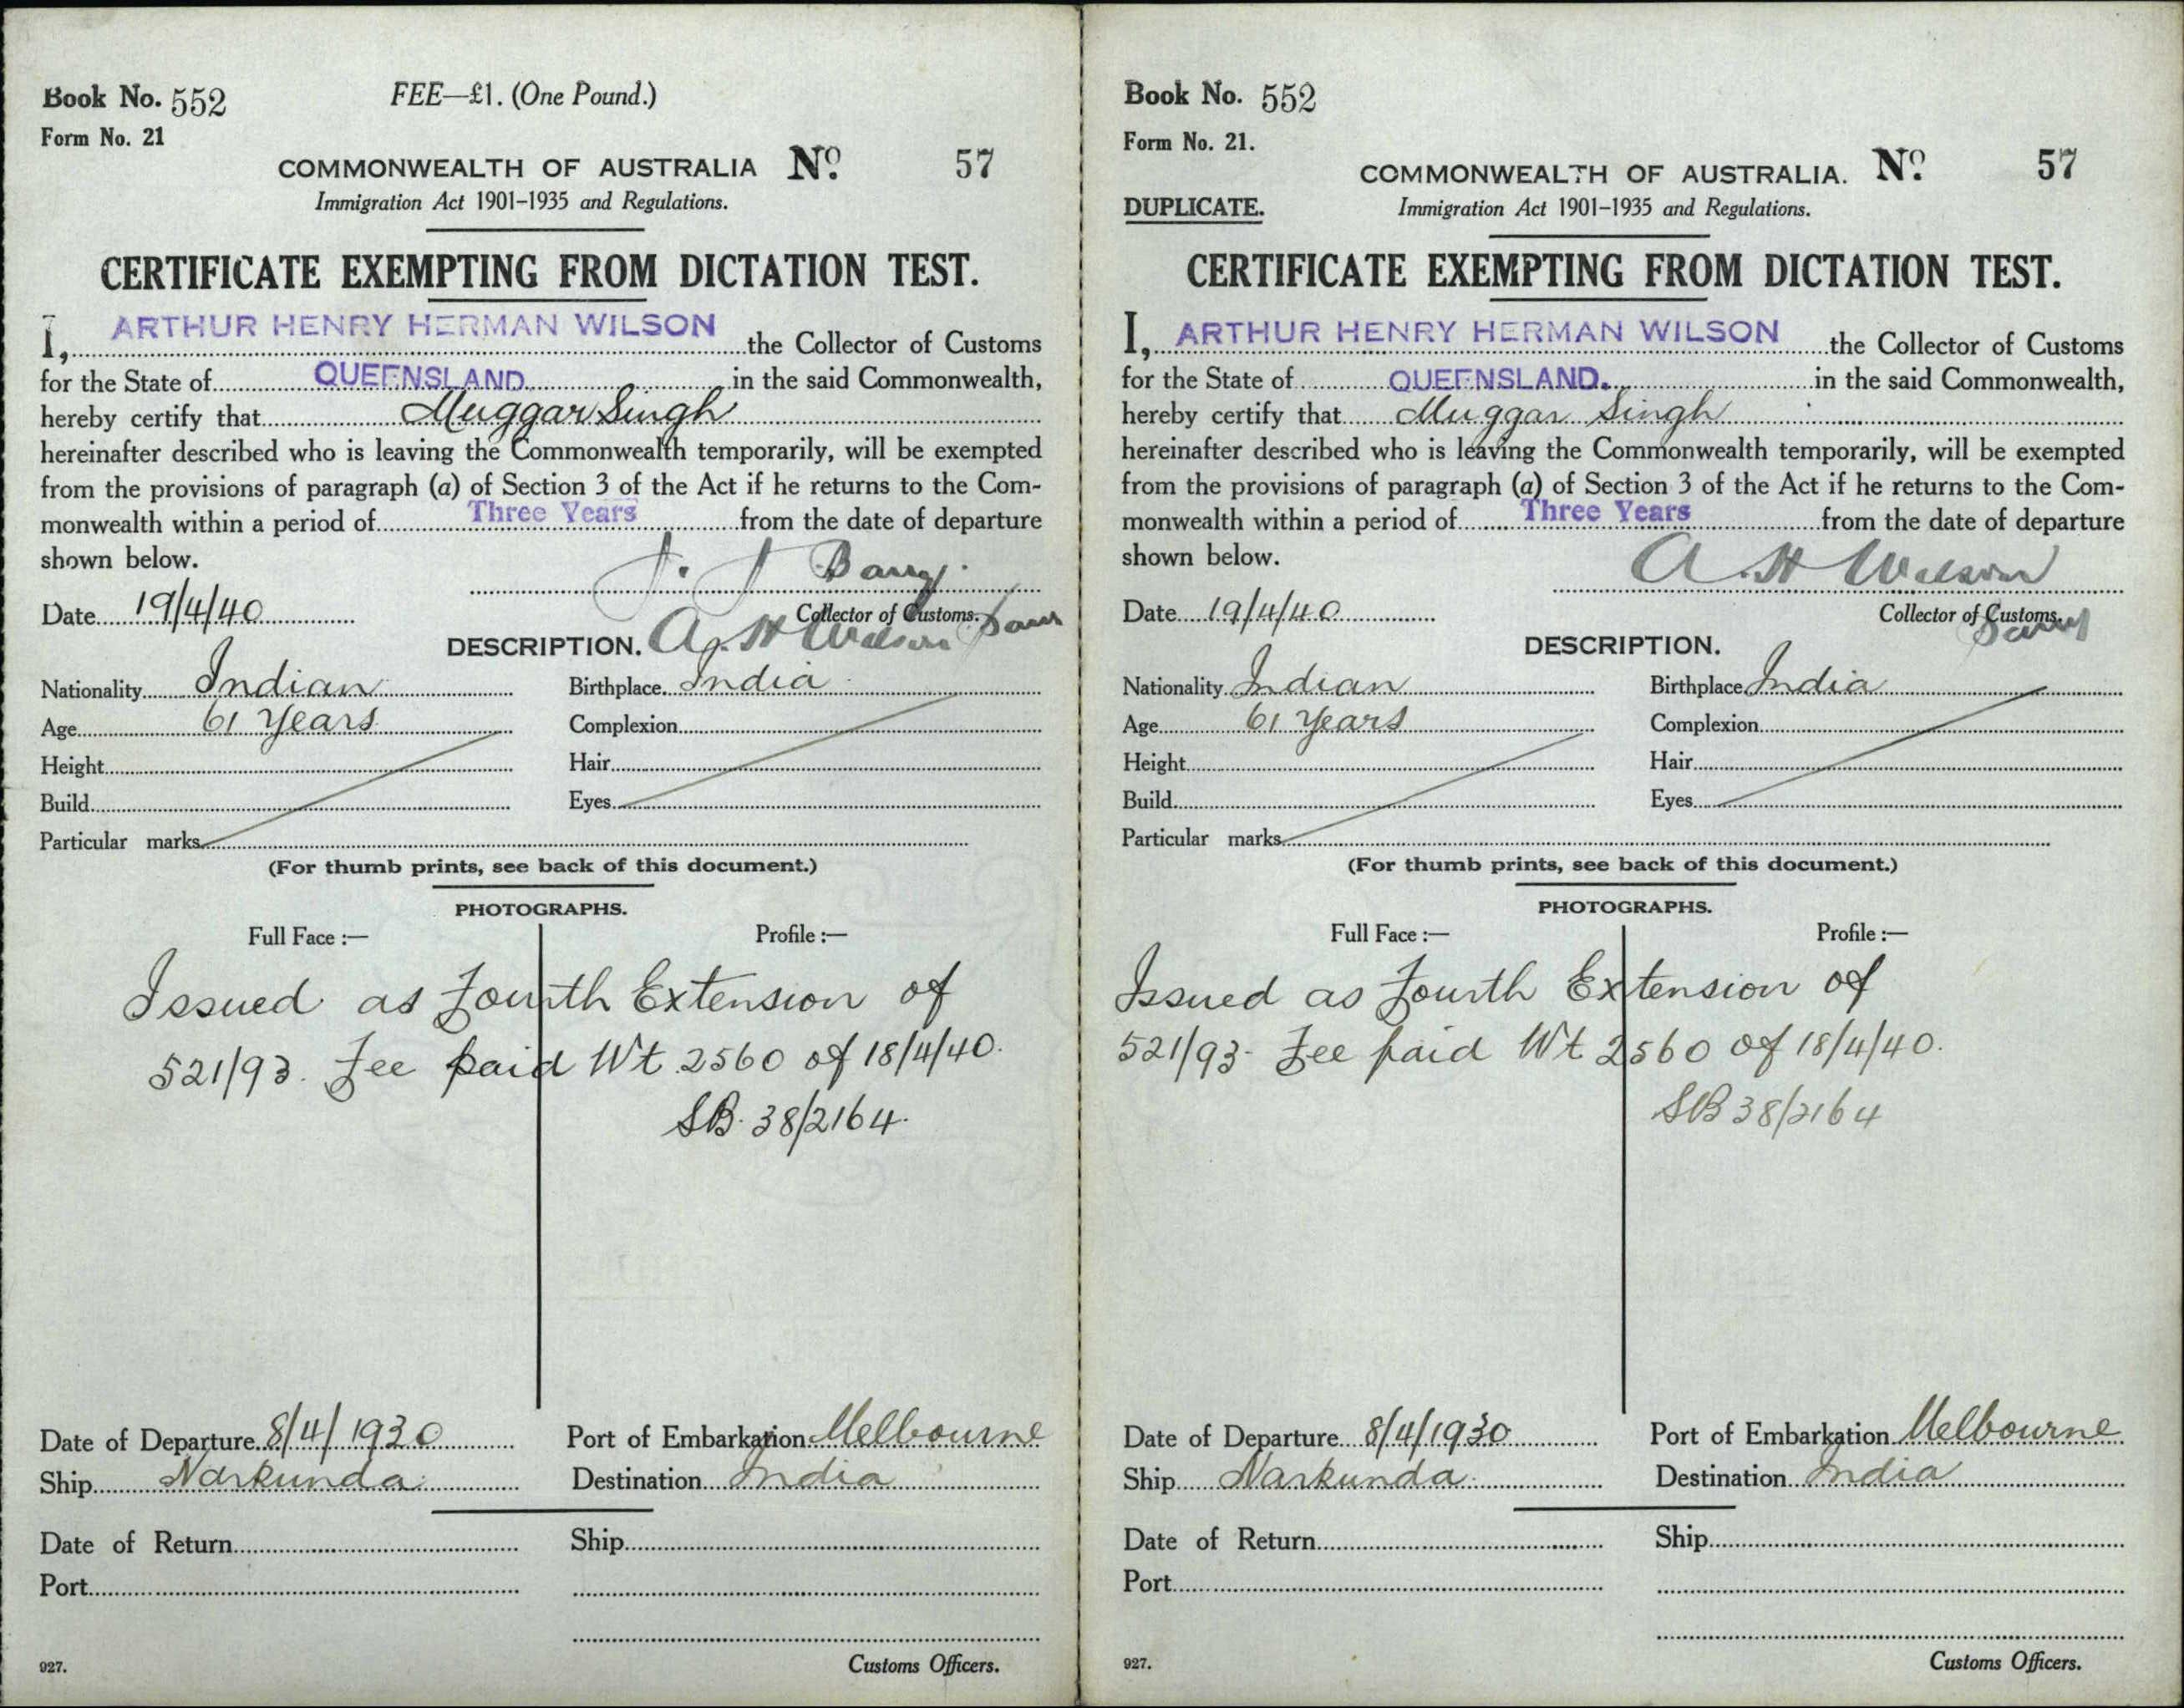 Book No. 552
FEE—£1. (One Pound.)
Form No. 21
COMMONWEALTH OF AUSTRALIA No. 57
Immigration Act 1901–1935 and Regulations.
CERTIFICATE EXEMPTING FROM DICTATION TEST.
I, ARTHUR HENRY HERMAN WILSON the Collector of Customs
for the State of QUEENSLAND in the said Commonwealth,
hereby certify that Muggar Singh
hereinafter described who is leaving the Commonwealth temporarily, will be exempted
from the provisions of paragraph (a) of Section 3 of the Act if he returns to the Com-
monwealth within a period of Three Years from the date of departure
shown below.
Date 19/4/40
Collector of Customs.
A. H Wilson
DESCRIPTION.
Nationality Indian Birthplace India
Age 61 Years Complexion
Height Hair
Build Eyes
Particular marks
(For thumb prints, see back of this document.)
PHOTOGRAPHS.
Full Face :— Profile :—
Issued as Fourth Extension of
521/93. Fee paid Wt 2560 of 18/4/40.
SB. 38/2164.
Date of Departure 8/4/1930 Port of Embarkation Melbourne
Ship Narkunda Destination India
Date of Return Ship
Port
927. Customs Officers.
Book No. 552
Form No. 21.
COMMONWEALTH OF AUSTRALIA. No. 57
DUPLICATE. Immigration Act 1901–1935 and Regulations.
CERTIFICATE EXEMPTING FROM DICTATION TEST.
I, ARTHUR HENRY HERMAN WILSON the Collector of Customs
for the State of QUEENSLAND. in the said Commonwealth,
hereby certify that Muggar Singh
hereinafter described who is leaving the Commonwealth temporarily, will be exempted
from the provisions of paragraph (a) of Section 3 of the Act if he returns to the Com-
monwealth within a period of Three Years from the date of departure
shown below.
A. H Wilson
Date 19/4/40 Collector of Customs.
DESCRIPTION.
Nationality Indian Birthplace India
Age 61 Years Complexion
Height Hair
Build Eyes
Particular marks
(For thumb prints, see back of this document.)
PHOTOGRAPHS.
Full Face :— Profile :—
Issued as Fourth Extension of
521/93- Fee paid Wt 2560 of 18/4/40.
SB 38/2164
Date of Departure 8/4/1930 Port of Embarkation Melbourne
Ship Narkunda Destination India
Date of Return Ship
Port
927. Customs Officers.